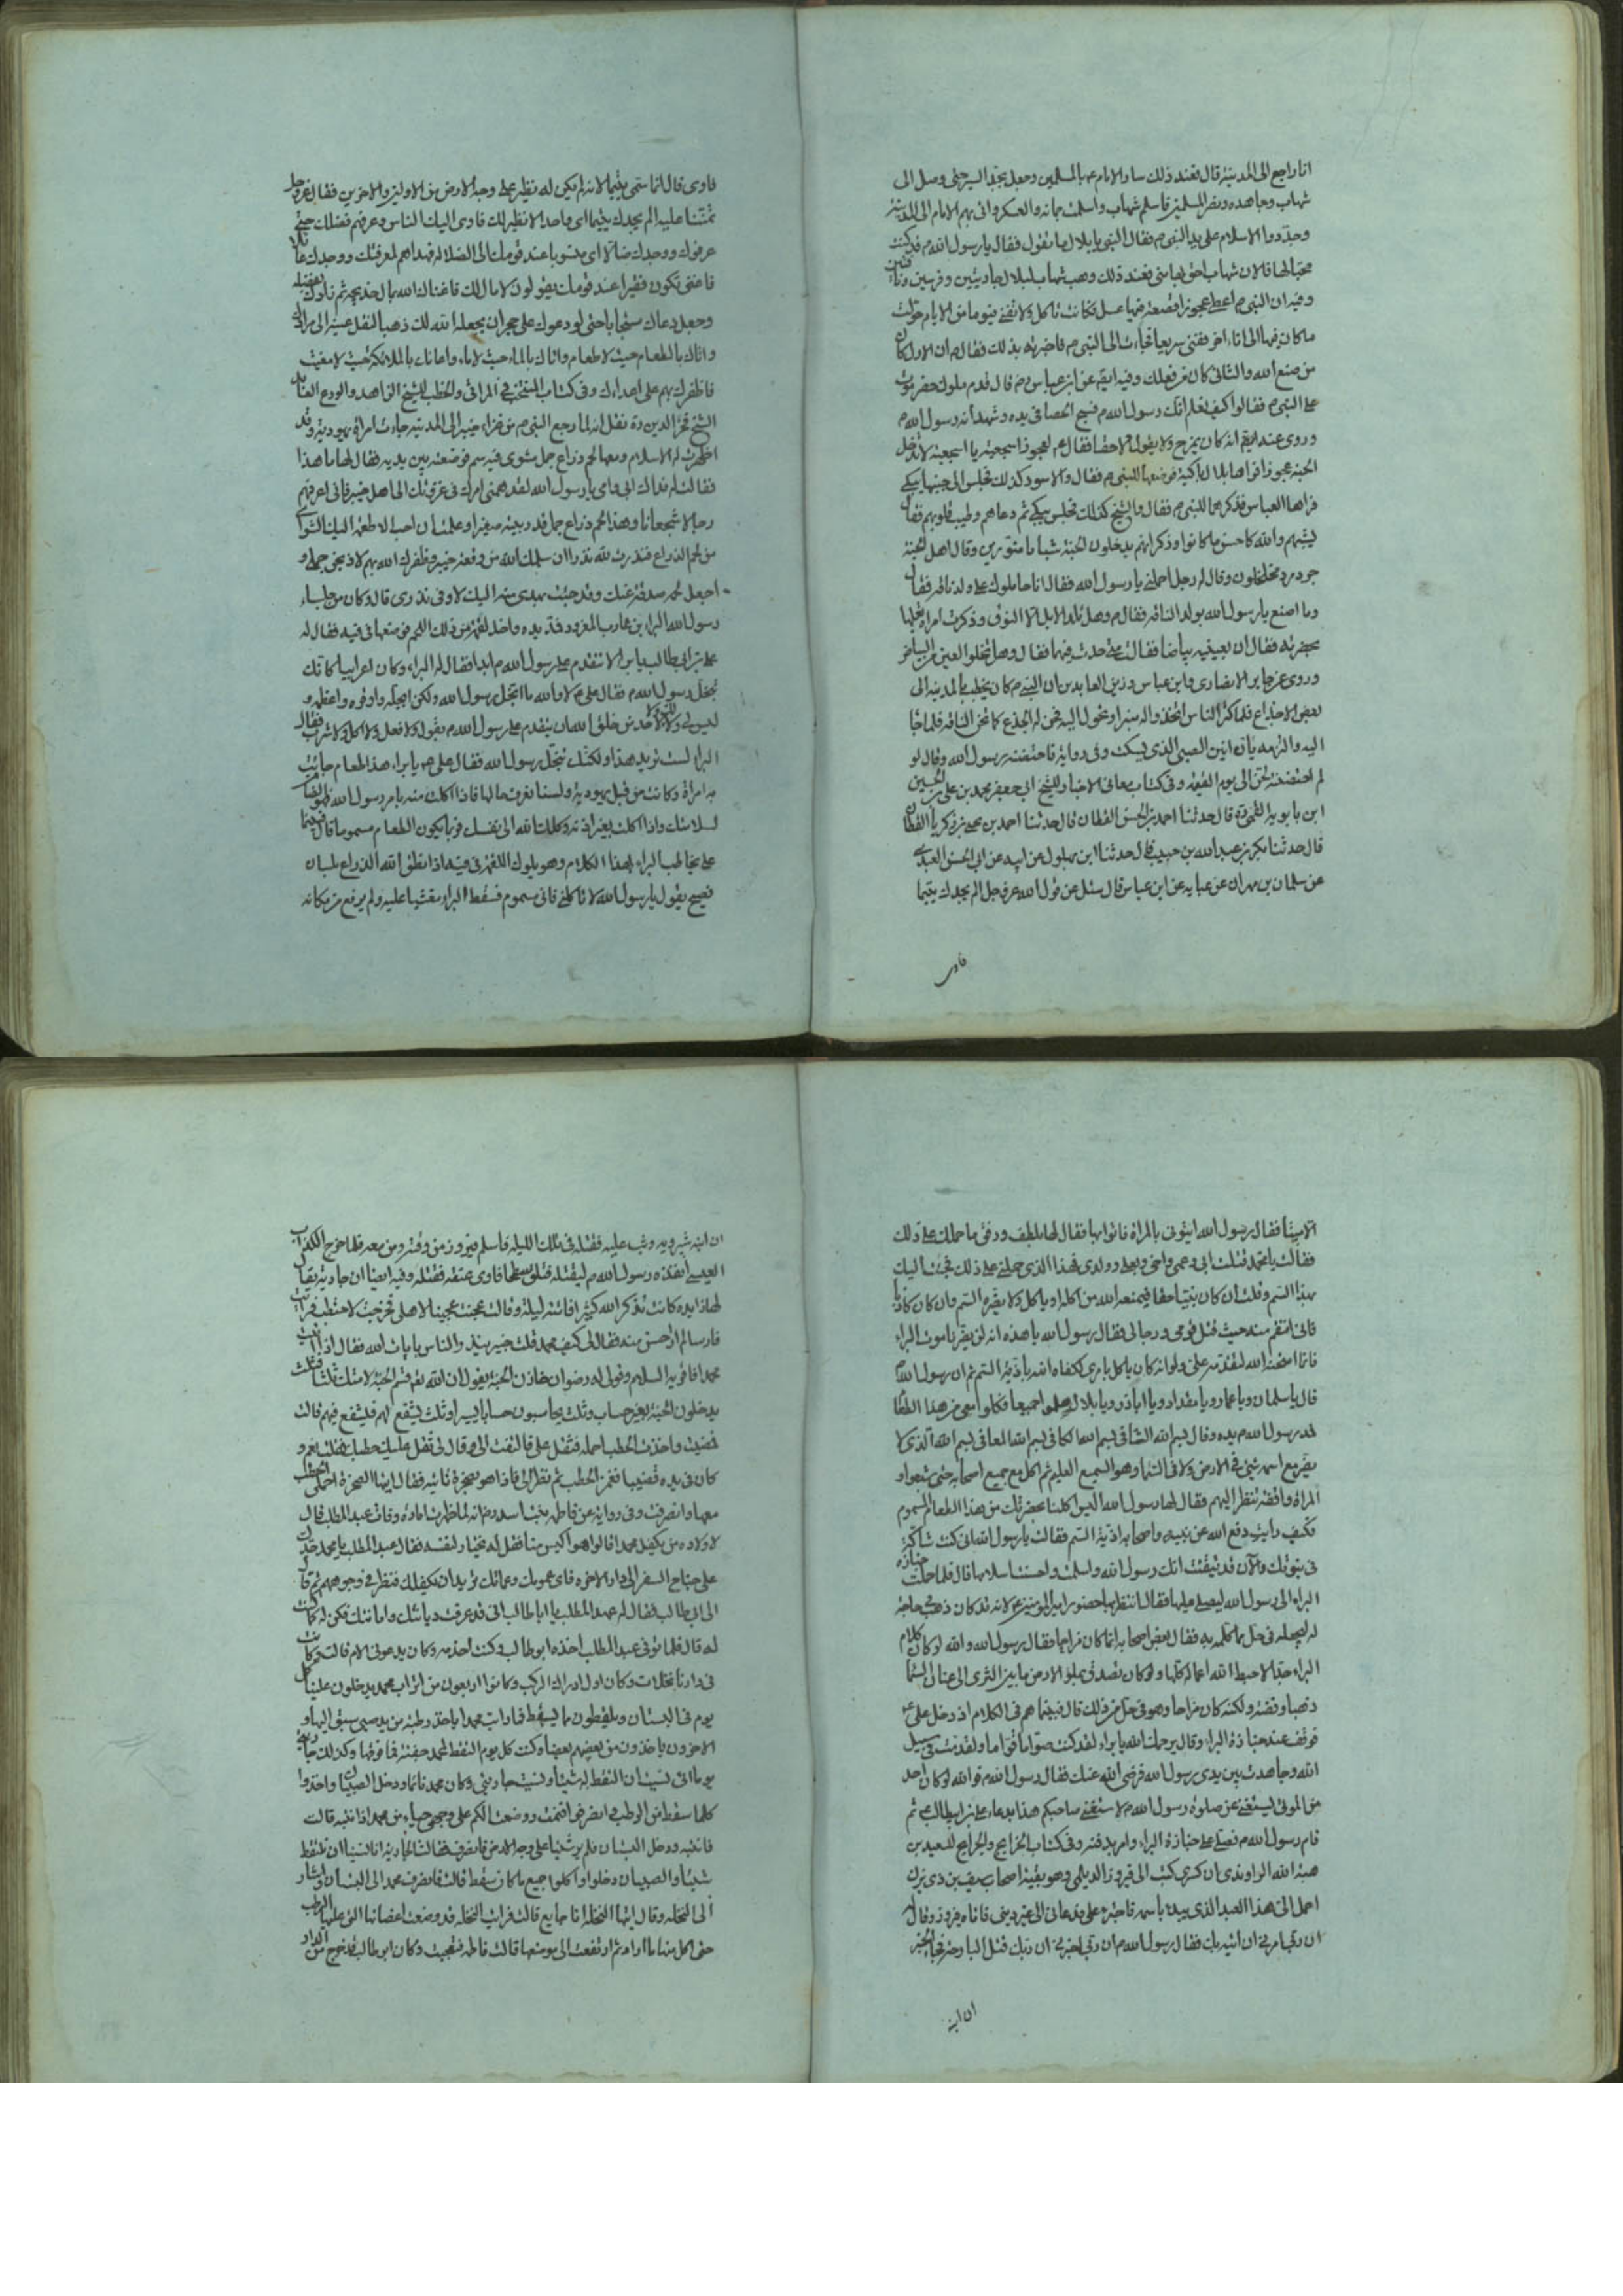 انا راجع الى المدينة قال فعند ذلك سار الامام ع بالمسلمين وجعل يجد السير حتى وصل الى
شهاب وجاهده ونصر المسلمين فاسلم شهاب واسلمت جمانه والعسكر واتى بهم الامام الى المدينة
وجددوا الاسلام على يد النبي ص فقال النبي يا بلال ما تقول فقال يا رسول الله ص قد كنت
محبا لها فالان شهاب احق بها مني فعند ذلك وهب شهاب لبلال جاريتين وفرسين وناقتين
وفيه ان النبي ص اعطى عجوزا قصعة فيها عسل فكانت تاكل ولا تفنى فيوما من الايام حولت
ما كان فيها الى اناء اخر ففنى سريعا فجاءت الى النبي ص فاخبرته بذلك فقال ص ان الاول كان
من صنع الله والثاني كان من فعلك وفيه ايضا عن ابن عباس رض قال قدم ملوك حضرموت
على النبي ص فقالوا كيف نعلم انك رسول الله ص فسبح الحصا في يده وشهد انه رسول الله ص
وروى عنه ايضا انه كان يمزح ولا يقول الا حقا فقال ع لعجوز اشجعية يا اشجعية لا تدخل
الجنة عجوز فراها بلال باكية فوصفها للنبي ص فقال والاسود كذلك فجلس الى جنبها يبكي
فراهما العباس فذكرهما للنبي ص فقال والشيخ كذلك فجلس يبكي ثم دعاهم وطيب قلوبهم فقال
ينشئهم والله كاحسن ما كانوا وذكر انهم يدخلون الجنة شبابا منورين وقال اهل الجنة
جرد مرد مكحلون وقال له رجل احملني يا رسول الله فقال انا حاملوك على ولد ناقة فقال
وما اصنع يا رسول الله بولد الناقة فقال ص وهل تلد الابل الا النوق وذكرت امراة بعلها
بحضرته فقال ان بعينيه بياضا فقالت متى حدث فيها فقال وهل تخلوا العين من البياض
وروى عن جابر الانصاري وابن عباس وزين العابدين ان النبي ص كان يخطب بالمدينة الى
بعض الاجذاع فلما كثر الناس اتخذوا له منبرا وتحول اليه فحن له الجذع كما تحن الناقة فلما جاء
اليه والتزمه يان انين الصبي الذي يسكت وفي رواية فاحتضنه رسول الله وقال لو
لم احتضنه لحن الى يوم القيمة وفي كتاب معاني الاخبار للشيخ ابي جعفر محمد بن علي بن الحسين
ابن بابويه القمي ره قال حدثنا احمد بن الحسن القطان قال حدثنا احمد بن يحيى بن زكريا القطان
قال حدثنا بكر بن عبد الله بن حبيب قال حدثنا ابن بهلول عن ابيه عن ابي الحسن العبدي
عن سليمان بن مهران عن عباية عن ابن عباس قال سئل عن قول الله عز وجل الم يجدك يتيما
فاوى
فاوى قال انما سمي يتيما لانه لم يكن له نظير على وجه الارض من الاولين والاخرين فقال عز وجل
ممتنا عليه الم يجدك يتيما اي واحدا لا نظير لك فاوى اليك الناس وعرفهم فضلك حتى
عرفوك ووجدك ضالا اي منسوبا عند قومك الى الضلالة فهداهم لمعرفتك ووجدك عائلا
فاغنى يكون فقيرا عند قومك يقولون لا مال لك فاغناك الله بمال خديجة ثم زادك بفضله
وجعل دعاك مستجابا حتى لو دعوت على حجر ان يجعله الله لك ذهبا لنقل عينه الى مرادك
واتاك بالطعام حيث لا طعام واتاك بالماء حيث لا ماء واعانك بالملائكة حيث لا مغيث
فاظفرك بهم على اعدائك وفي كتاب المنتخب في المراثي والخطب للشيخ الزاهد والورع العابد
الشيخ فخر الدين ره نقل انه لما رجع النبي ص من غزاء خيبر الى المدينة جاءت امراة يهودية وقد
اظهرت له الاسلام ومعها لحم ذراع جمل مشوي فيه سم فوضعته بين يديه فقال لها ما هذا
فقالت له فداك ابي وامي يا رسول الله لقد همني امرك في غزوتك الى اهل خيبر فاني اعرفهم
رجالا شجعانا وهذا لحم ذراع جمل قد ربيته صغيرا وعلمت ان احب الاطعمة اليك الشواء
من لحم الذراع فنذرت لله نذرا ان سلمك الله من وقعة خيبر وظفرك الله بهم لاذبحن جملي و
اجعل لحمه صدقة عنك وقد جئت بهدي منه اليك لاوفي نذري قال وكان من جلساء
رسول الله البراء بن عازب المعرور فمد يده واخذ لقمة من ذلك اللحم فوضعها في فيه فقال له
علي بن ابي طالب يا براء لا تتقدم على رسول الله ص ابدا فقال له البراء وكان اعرابيا كانك
تبخل رسول الله ص فقال علي ع لا والله ما ابخل رسول الله ولكن ابجله واوقره واعظمه و
ليس لي ولا لك ولا لاحد من خلق الله ان يتقدم على رسول الله ص بقول ولا فعل ولا اكل ولا شرب فقال
البراء لست تريد هذا ولكنك تبخل رسول الله فقال علي ع يا براء هذا طعام جائت
به امراة وكانت من قبل يهودية ولسنا نعرف حالها فاذا اكلت منه بامر رسول الله فهو الضامن
لسلامتك واذا اكلت بغير اذنه وكلك الله الى نفسك فربما يكون الطعام مسموما قال فبينما
علي يخاطب البراء بهذا الكلام وهو يلوك اللقمة في فيه اذا نطق الله الذراع بلسان
فصيح يقول يا رسول الله لا تاكلني فاني مسموم فسقط البراء مغشيا عليه ولم يرفع من مكانه
الا ميتا فقال رسول الله ايتوني بالمراة فاتوا بها فقال لها بلطف ورفق ما حملك على ذلك
فقالت يا محمد قتلت ابي وعمي واخي وبعلي وولدي فهذا الذي حملني على ذلك فجئت اليك
بهذا السم وقلت ان كان نبيا حقا فيمنعه الله من اكله او ياكل ولا يضره السم وان كان كاذبا
فاني انتقم منه حيث قتل قومي ورجالي فقال رسول الله يا هذه انه لن يضر بنا موت البراء
فانما امتحنه الله لتقدمه علي ولو انه كان ياكل بامري لكفاه الله باذية السم ثم ان رسول الله ص
قال يا سلمان ويا عمار ويا مقداد ويا ابا ذر ويا بلال هلموا جميعا فكلوا معي من هذا الطعام
فمد رسول الله ص يده وقال بسم الله الشافي بسم الله الكافي بسم الله المعافي بسم الله الذي لا
يضر مع اسمه شيء في الارض ولا في السماء وهو السميع العليم ثم اكل مع جميع اصحابه حتى شبعوا و
المراة واقفة تنظر اليهم فقال لها رسول الله اليس اكلنا بحضرتك من هذا الطعام المسموم
فكيف رايت دفع الله عن نبيه واصحابه اذية السم فقالت يا رسول الله اني كنت شاكة
في نبوتك والان قد تيقنت انك رسول الله واسلمت واحسنت اسلامها قال فلما حملت جنازة
البراء الى رسول الله ليصلي عليها فقال انتظر بها حضور امير المؤمنين ع لانه قد كان ذهب في حاجة
له ليجعله في حل مما كلمه به فقال بعض اصحابه انما كان مزاحا فقال رسول الله والله لو كان كلام
البراء جدا لاحبط الله اعماله كلها ولو كان تصدق بملؤ الارض ما بين الثرى الى عنان السماء
ذهبا وفضة ولكنه كان مزاحا وهو في حل من ذلك قال فبينما هم في الكلام اذ دخل علي ع
فوقف عند جنازة البراء وقال يرحمك الله يا براء لقد كنت صواما قواما ولقد مت في سبيل
الله وجاهدت بين يدي رسول الله فرضي الله عنك فقال رسول الله ص فوالله لو كان احد
من الموتى يستغني عن صلوة رسول الله ص لاستغنى صاحبكم هذا بدعاء علي بن ابي طالب ع ثم
قام رسول الله ص فصلى على جنازة البراء وامر بدفنه وفي كتاب الخرايج والجرايح للسعيد بن
هبة الله الراوندي ان كسرى كتب الى فيروز الديلمي وهو بقية اصحاب سيف بن ذي يزن
احمل الى هذا العبد الذي يبدء باسمه قبل اسمي فاجترء علي ودعاني الى غير ديني فاتاه فيروز وقال له
ان ربي امرني ان اتيه بك فقال رسول الله ص ان ربي اخبرني ان ربك قتل البارحة فجاء الخبر
ان ابنه
ان ابنه شيرويه وثب عليه فقتله في تلك الليلة فاسلم فيروز من وقته ومن معه فلما خرج الكذاب
العبسي انفذه رسول الله ص ليقتله فتلق سطحا فلوى عنقه فقتله وفيه ايضا ان جارية يقال
لها زايده كانت تذكر الله كثيرا فاتته ليلة وقالت عجنت عجينا لاهلي فخرجت لاحتطب فرايت
فارسا لم ار احسن منه فقال لي كيف محمد قلت بخير ينذر الناس بايات الله فقال اذا اتيت
محمدا فاقرئيه السلام وقولي له رضوان خازن الجنة يقول ان الله تع قسم الجنة لامتك ثلثا فثلث
يدخلون الجنة بغير حساب وثلث يحاسبون حسابا يسيرا وثلث تشفع لهم فتشفع فيهم قالت
فمضيت واخذت الحطب احمله فثقل علي فالتفت الي وقال لي ثقل عليك حطبك فقلت نعم و
كان في يده قضيبا فغمز الحطب ثم نظر الي فاذا هو بصخرة ناتئة فقال ايها الصخرة احملي الحطب
معها وانصرفت وفي رواية عن فاطمة بنت اسد رض انه لما ظهرت امارة وفات عبد المطلب قال
لاولاده من يكفل محمدا قالوا هو اكيس منا فقل له يختار لنفسه فقال عبد المطلب يا محمد جدك
على جناح السفر الى دار الاخرة فاي عمومتك وعماتك تريد ان يكفلك فنظر في وجوههم ثم مال
الى ابي طالب فقال له عبد المطلب يا ابا طالب اني قد عرفت ديانتك وامانتك فكن له كما كنت
له قال فلما توفي عبد المطلب اخذه ابو طالب وكنت اخدمه وكان يدعوني الام قالت وكانت
في دارنا نخلات وكان اول ادراك الرطب وكانوا اربعون من اتراب محمد يدخلون علينا كل
يوم في البستان ويلتقطون ما يسقط فما رايت محمدا ياخذ رطبة من يد صبي سبق اليها و
الاخرون ياخذون من بعضهم بعضا وكنت كل يوم التقط لمحمد حفنة فما فوقها وكذلك جاريتي
يوما اني نسيت ان التقط له شيئا ونسيت جاريتي وكان محمد نائما ودخل الصبيان واخذوا
كلما سقط من الرطب فانصرفوا فنمت ووضعت الكم على وجهي حياء من محمد اذا انتبه قالت
فانتبه ودخل البستان فلم ير شيئا على وجه الارض فانصرف فقالت الجارية انا نسينا ان نلتقط
شيئا والصبيان دخلوا واكلوا جميع ما كان سقط قالت فانصرف محمد الى البستان واشار
الى النخلة وقال ايتها النخلة انا جايع قالت فرايت النخلة قد وضعت اغصانها التي عليها الرطب
حتى اكل منها ما اراد ثم ارتفعت الى موضعها قالت فاطمة فتعجبت وكان ابو طالب قد خرج من الدار